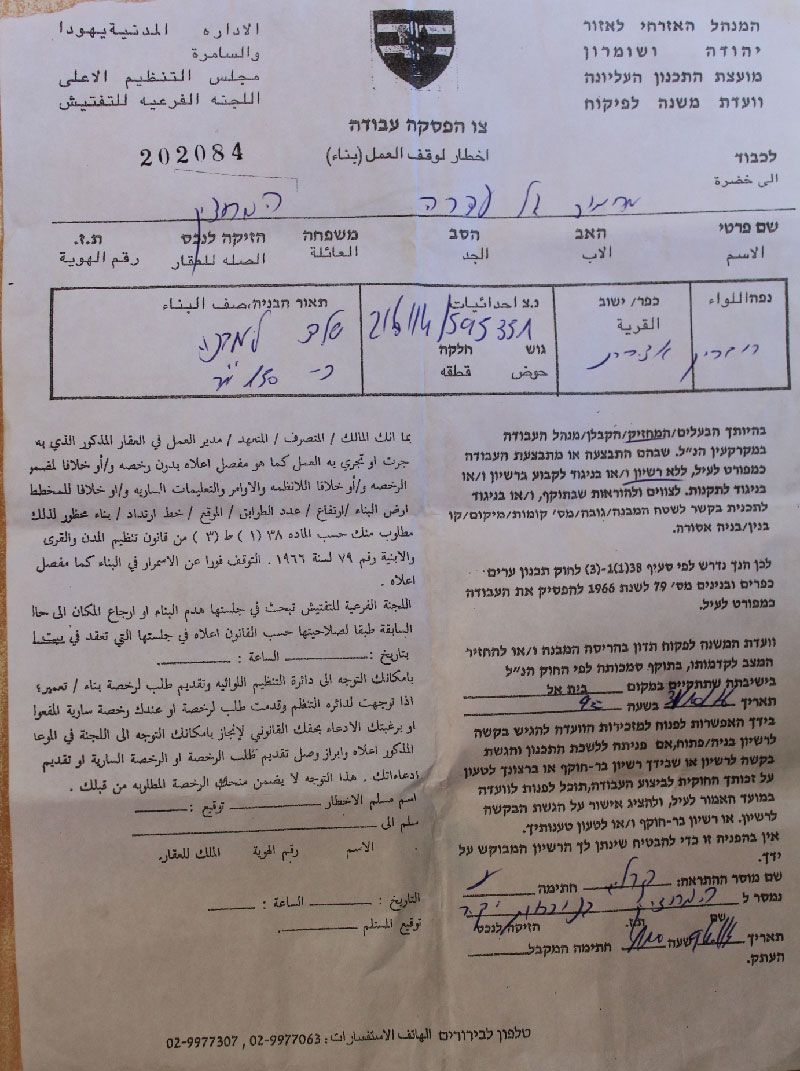 המנהל האזרחי לאזור
יהודה ושומרון
מועצת התכנון העליונה
וועדת משנה לפיקוח
الاداره المدنية يهودا
والسامرة
مجلس التنظيم الاعلى
اللجنه الفرعيه للتفتيش
צו הפסקה עבודה
اخطار لوقف العمل (بناء)
202084
לכבוד
الى حضرة
שם פרטי האב הסב משפחה הזיקה לנכס ת.ז.
الاسم الاب الجد العائلة الصله للعقار رقم الهوية
נפה اللواء
כפר/ ישוב
القرية
נ.צ احداثيات
גוש חלקה
حوض قطعه
תאור הבניה،صف البناء
בהיותך הבעלים/המחזיק/הקבלן/מנהל העבודה
במקרקעין הנ"ל. שבהם התבצעה או מתבצעת העבודה
כמפורט לעיל, ללא רשיון ו/או בניגוד לקבוע ברשיון ו/או
בניגוד לתקנות. לצווים ולהוראות שבתוקף, ו/או בניגוד
לתכנית בקשר לשטח המבנה/גובה/מס' קומות/מיקום/קו
בנין/בניה אסורה.
לכן הנך נדרש לפי סעיף 38(1)-(3) לחוק תכנון ערים
כפרים ובנינים מס' 79 לשנת 1966 להפסיק את העבודה
כמפורט לעיל.
וועדת המשנה לפקוח תדון בהריסה המבנה ו/או להחזיר
המצב לקדמותו, בתוקף סמכותה לפי החוק הנ"ל
בישיבתה שתתקיים במקום בית אל
תאריך בשעה
בידך האפשרות לפנות למזכירות הוועדה להגיש בקשה
לרשיון בניה/פתוח,אם פניתה ללשכת התכנון והגשת
בקשה לרשיון או שבידך רשיון בר-חוקף או ברצונך לטעון
על זכותך החוקית לביצוע העבודה,תוכל לפנות לוועדה
במועד האמור לעיל, ולהציג אישור על הגשת הבקשה
לרשיון. או רשיון בר-חוקף ו/או לטעון טענותיך.
אין בהפניה זו כדי להבטיח שינתן לך הרשיון המבוקש על
ידך.
שם מוסר ההתראה: חתימה
נמסר ל
שם ת.ז. הזיקה לנכס
תאריך שעה חתימה המקבל
העתק.
بما انك المالك / المتصرف / المتعهد / مدير العمل في العقار المذكور الذي به
جرت او تجري به العمل كما هو مفصل اعلاه بدرن رخصه و/أو خلافا لمقسمر
الرخصه و/أو خلافا اللانظمه والاوامر والتعليمات الساريه و/او خلافا للمخطط
ارض البناء /ارتفاع / عدد الطرابق / الموقع / خط ارتداد / بناء محظور لذلك
مطلوب منك حسب الماده ٣٨ (١) ط (٣) من قانون تنظيم المدن والقرى
والابنية رقم ٧٩ لسنة ١٩٦٦ . التوقف فورا عن الاسمرار في البناء كما مفصل
اعلاه .
اللجنة الفرعية للتفتيش تبحث في جلستها هدم البناء او ارجاع المكان الى حا
السابقة طبقا لصلاحيتها حسب القانون اعلاه في جلستها التي تعقد في
بتاريخ : الساعة :
بامكانك التوجه الى دائرة التنظيم اللوائيه وتقديم طلب لرخصة بناء / تعمير؟
اذا توجهت لدائره التنظم وقدمت طلب لرخصة او عندك رخصة سارية المفعو
او برغبتك الادعاء بحقك القانوني لإنجاز بامكانك التوجه الى اللجنة في الموعا
المذكور اعلاه وابراز وصل تقديم طلب الرخصة او الرخصة السارية او تقديم
ادعاءاتك . هذا التوجه لا يضمن منحك الرخصة المطلوبه من قبلك .
اسم مسلم الاخطار توقيع :
سلم الى
الاسم رقم الهوية الملك للعقار.
التاريخ : الساعة :
توقيع المستلم
טלפון לבירורים الهاتف الاستفسارات : 02-9977063 , 02-9977307